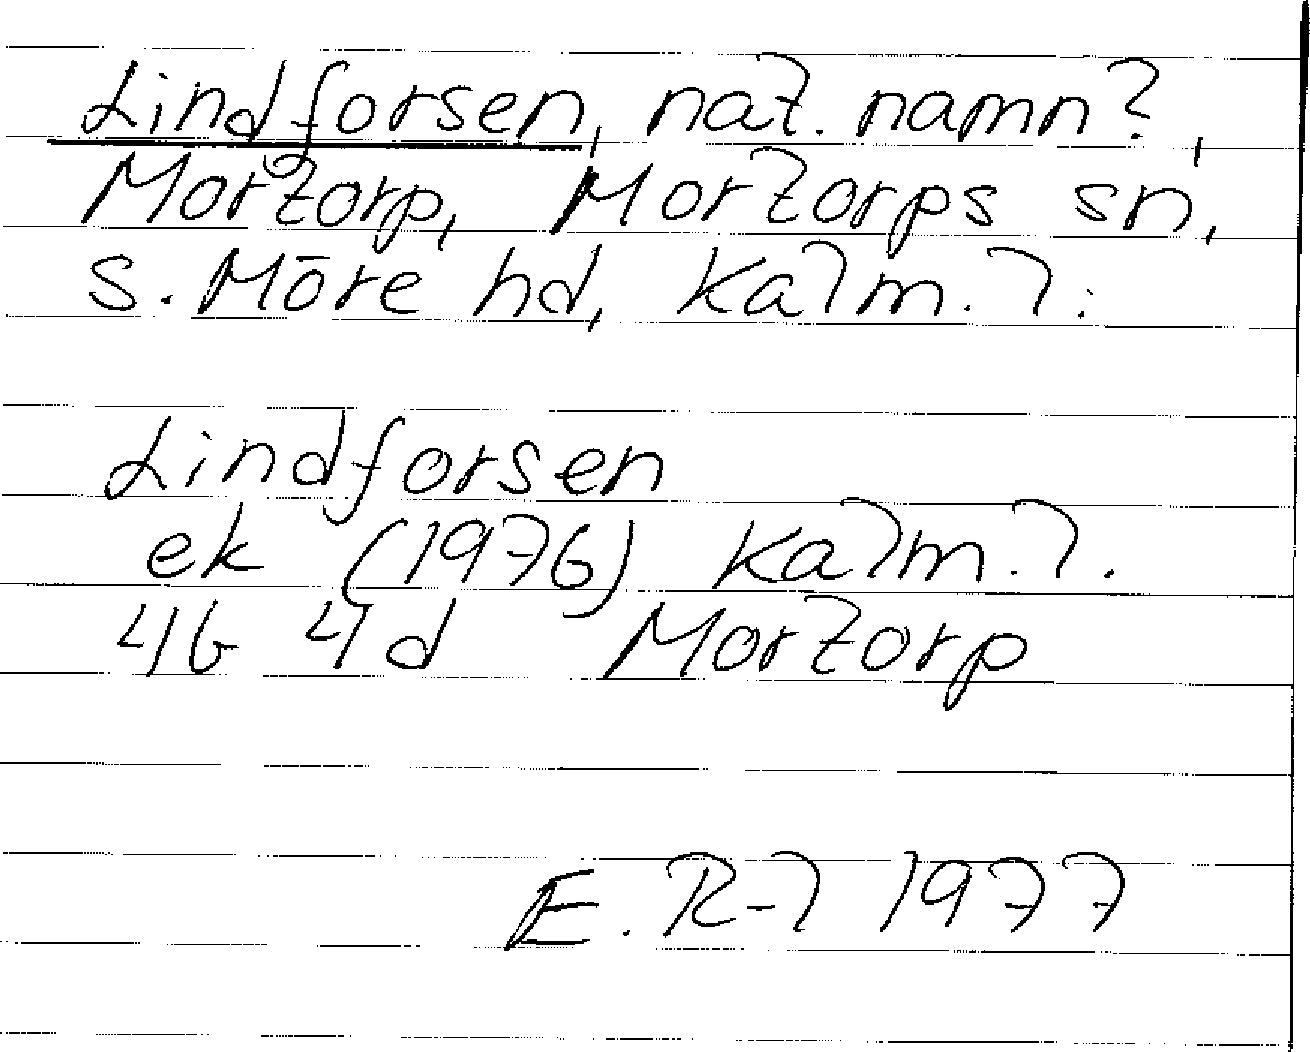 Lindforsen, nat. namn?,
Mortorp, Mortorps sn,
S. Möre hd, Kalm. l.:
Lindforsen
ek (1976) Kalm. l.
4G 4d Mortorp
E. R-l 1977